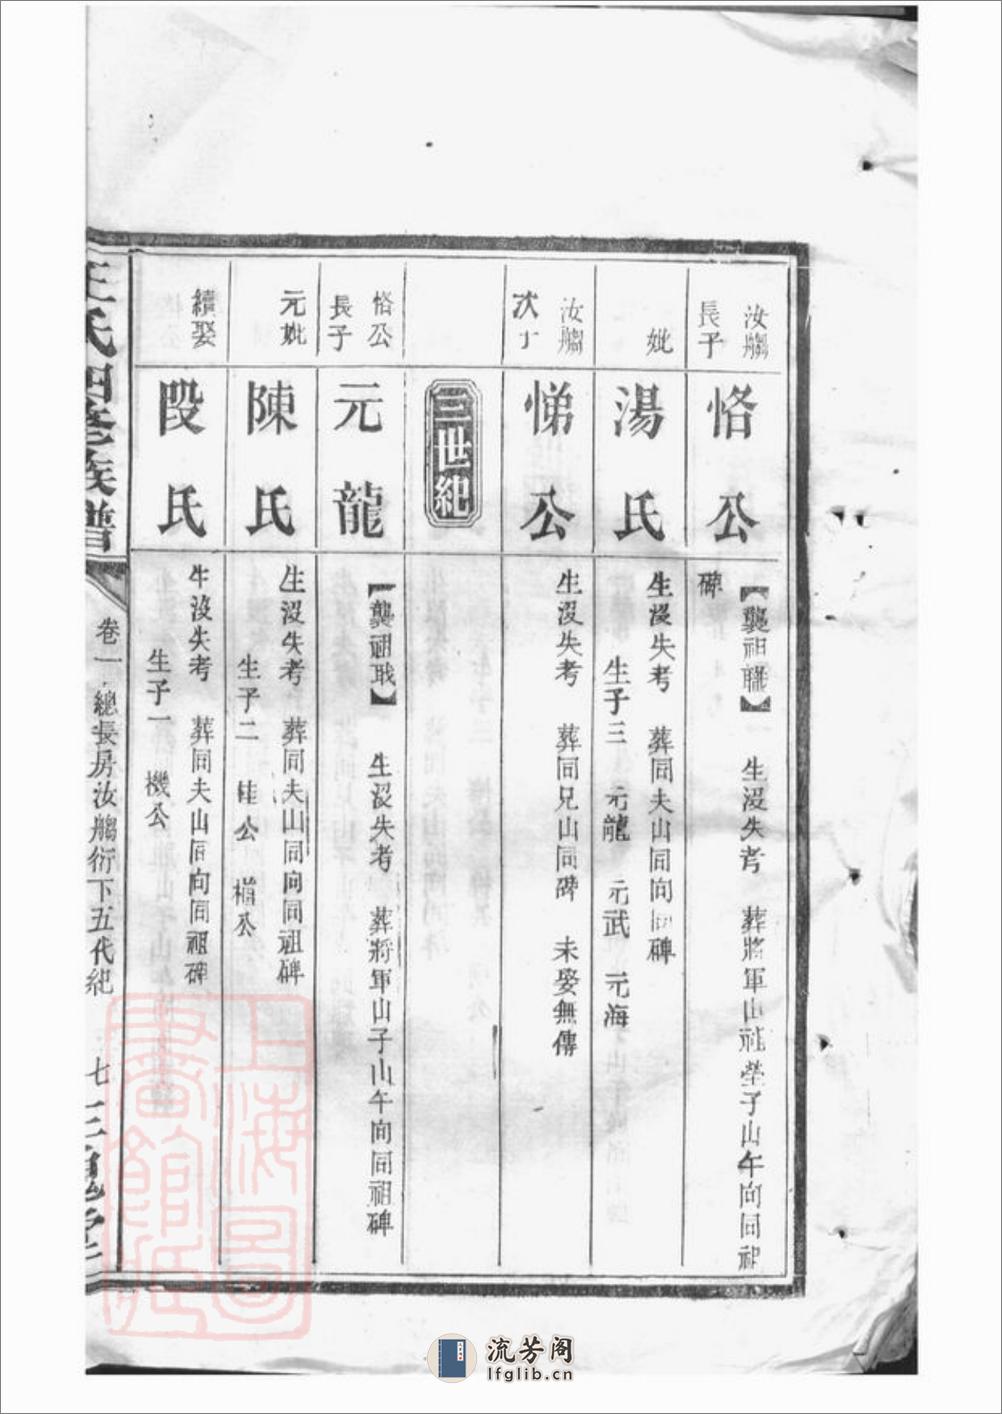 汝艒
長子
恪公
【襲祖職】 生沒失考 葬將軍山祖塋子山午向同祖
碑
妣
湯氏
生沒失考 葬同夫山同向同碑
生子三 元龍 元武 元海
汝艒
次子
悌公
生沒失考 葬同兄山同碑 未娶無傳
三世紀
恪公
長子
元龍
【襲祖職】 生沒失考 葬將軍山子山午向同祖碑
元妣
陳氏
生沒失考 葬同夫山同向同祖碑
生子二 桂公 楷公
續娶
段氏
生沒失考 葬同夫山同向同祖碑
生子一 機公
王氏四修族譜
卷一 總長房汝艒衍下五代紀
七 三槐堂
上海圖書館藏
流芳阁
lfglib.cn